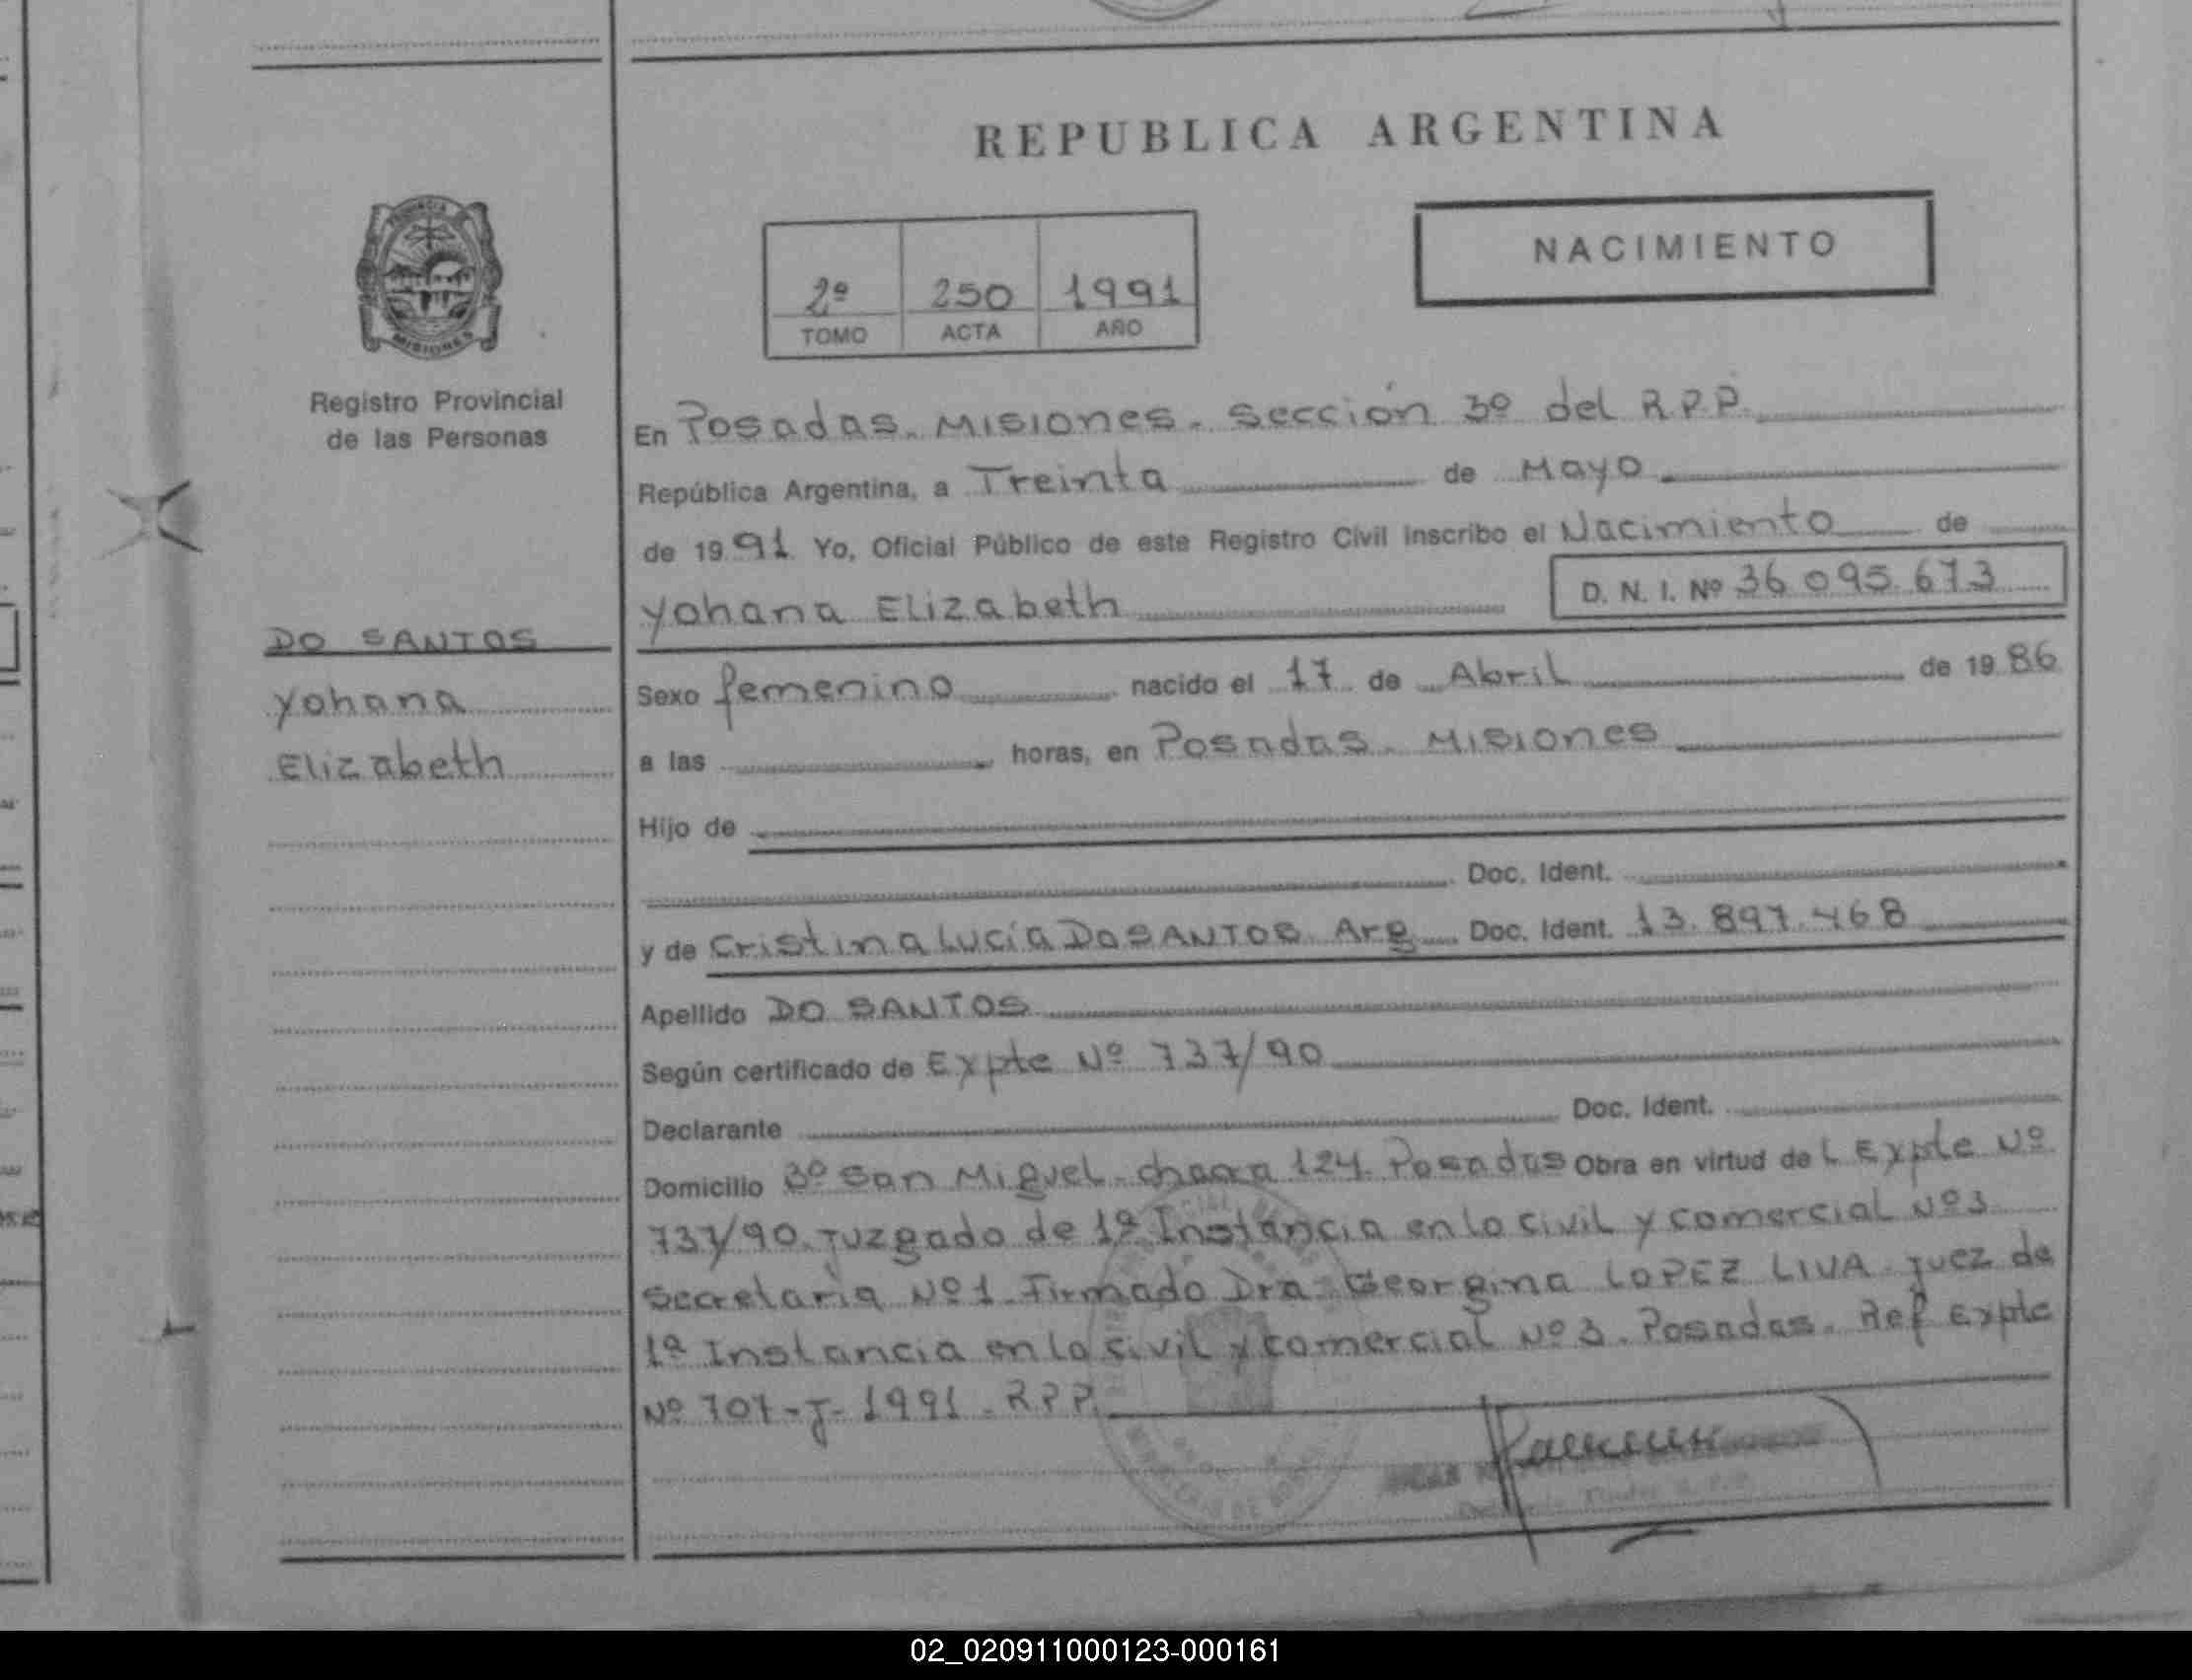 REPUBLICA ARGENTINA
PROVINCIA
MISIONES
Registro Provincial
de las Personas
2º 250 1991
TOMO ACTA AÑO
NACIMIENTO
En Posadas. Misiones. Sección 3º del R.P.P.
República Argentina, a Treinta de Mayo
de 1991 Yo, Oficial Público de este Registro Civil Inscribo el Nacimiento de
Yohana Elizabeth D. N. I. Nº 36.095.673
DO SANTOS
Yohana
Elizabeth
Sexo femenino nacido el 17 de Abril de 1986
a las horas, en Posadas. Misiones
Hijo de
Doc. Ident.
y de Cristina Lucía Do SANTOS. Arg Doc. Ident. 13.897.468
Apellido DO SANTOS
Según certificado de Expte Nº 737/90
Declarante Doc. Ident.
Domicilio Bº San Miguel. chacra 124. Posadas Obra en virtud de L Expte Nº
737/90. Juzgado de 1º Instancia en lo civil y comercial Nº3
Secretaria Nº1. Firmado Dra. Georgina LOPEZ LIVA. Juez de
1º Instancia en lo civil y comercial Nº 3. Posadas. Ref Expte
Nº 707-J-1991. R.P.P.
02_020911000123-000161